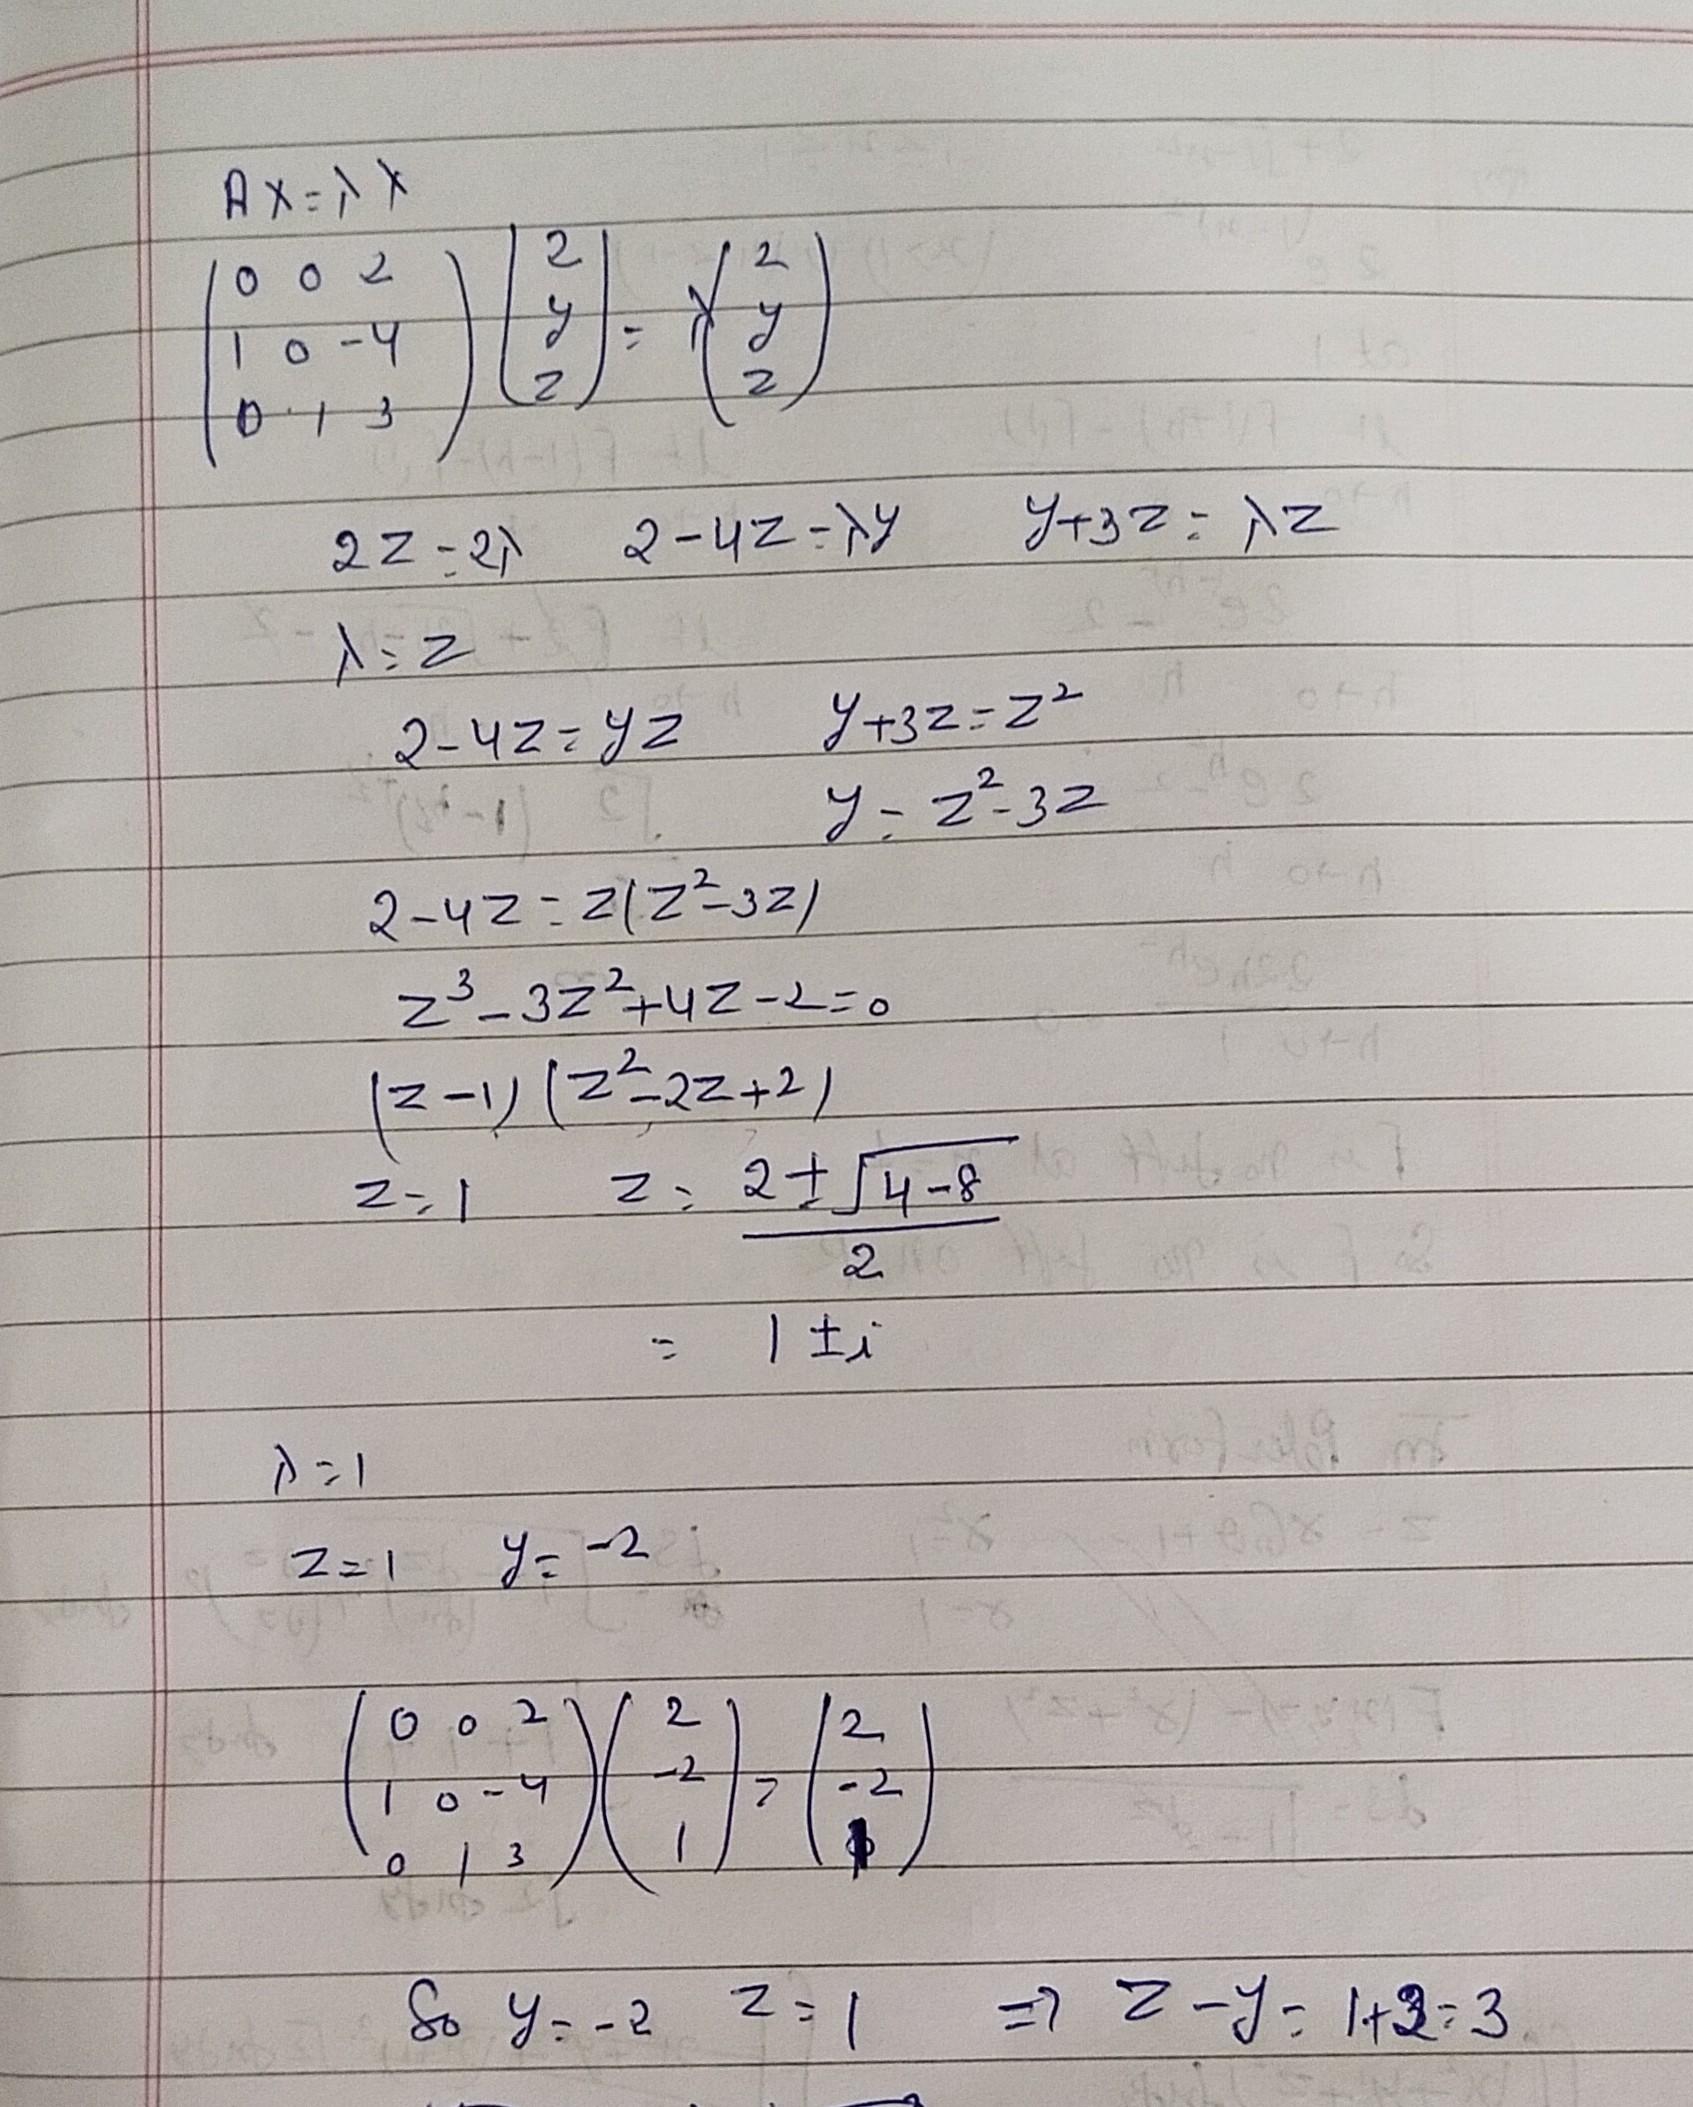 AX = λX
(0 0 2; 1 0 -4; 0 1 3) (2; y; z) = λ (2; y; z)
2z = 2λ   2 - 4z = λy   y + 3z = λz
λ = z
2 - 4z = yz   y + 3z = z²
y = z² - 3z
2 - 4z = z(z² - 3z)
z³ - 3z² + 4z - 2 = 0
(z - 1) (z² - 2z + 2)
z = 1   z = (2 ± √(4 - 8)) / 2
= 1 ± i
λ = 1
z = 1   y = -2
(0 0 2; 1 0 -4; 0 1 3) (2; -2; 1) = (2; -2; 1)
So y = -2   z = 1   ⇒ z - y = 1 + 2 = 3